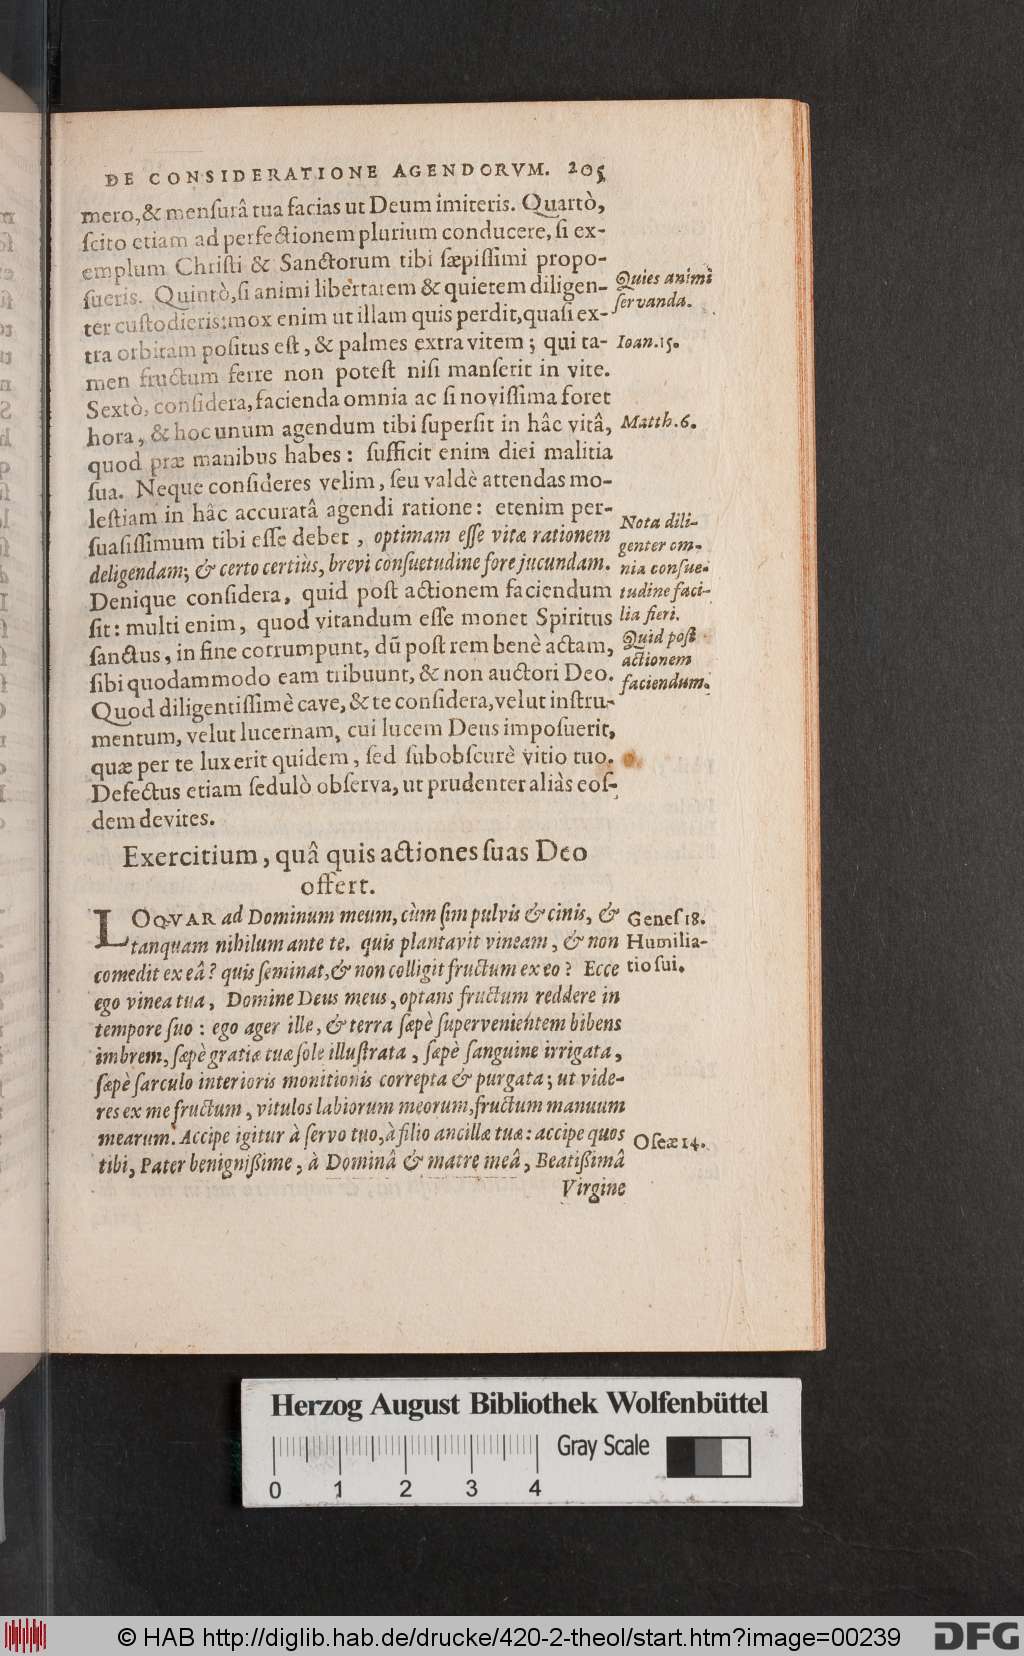 DE CONSIDERATIONE AGENDORVM. 205
mero, & mensurâ tua facias ut Deum imiteris. Quartò,
scito etiam ad perfectionem plurium conducere, si ex-
emplum Christi & Sanctorum tibi sæpissimi propo-
sueris. Quintò, si animi libertatem & quietem diligen-
ter custodieris: mox enim ut illam quis perdit, quasi ex-
tra orbitam positus est, & palmes extra vitem; qui ta-
men fructum ferre non potest nisi manserit in vite.
Sextò, considera, facienda omnia ac si novissima foret
hora, & hoc unum agendum tibi supersit in hâc vitâ,
quod præ manibus habes: sufficit enim diei malitia
sua. Neque consideres velim, seu valdè attendas mo-
lestiam in hâc accuratâ agendi ratione: etenim per-
suasissimum tibi esse debet, optimam esse vitæ rationem
deligendam; & certo certiùs, brevi consuetudine fore jucundam.
Denique considera, quid post actionem faciendum
sit: multi enim, quod vitandum esse monet Spiritus
sanctus, in fine corrumpunt, dũ post rem benè actam,
sibi quodammodo eam tribuunt, & non auctori Deo.
Quod diligentissimè cave, & te considera, velut instru-
mentum, velut lucernam, cui lucem Deus imposuerit,
quæ per te lux erit quidem, sed subobscurè vitio tuo.
Defectus etiam sedulò observa, ut prudenter aliàs eos-
dem devites.
Quies animi
servanda.
Ioan. 15.
Matth. 6.
Nota dili-
genter om-
nia consue-
tudine faci-
lia fieri.
Quid post
actionem
faciendum.
Exercitium, quâ quis actiones suas Deo
offert.
LOQVAR ad Dominum meum, cùm sim pulvis & cinis, &
tanquam nihilum ante te. quis plantavit vineam, & non
comedit ex eâ? quis seminat, & non colligit fructum ex eo? Ecce
ego vinea tua, Domine Deus meus, optans fructum reddere in
tempore suo: ego ager ille, & terra sæpè supervenientem bibens
imbrem, sæpè gratiæ tuæ sole illustrata, sæpè sanguine irrigata,
sæpè sarculo interioris monitionis correpta & purgata; ut vide-
res ex me fructum, vitulos labiorum meorum, fructum manuum
mearum. Accipe igitur à servo tuo, à filio ancillæ tuæ: accipe quos
tibi, Pater benignissime, à Dominâ & matre meâ, Beatissimâ
Virgine
Genes 18.
Humilia-
tio sui.
Oseæ 14.
Herzog August Bibliothek Wolfenbüttel
Gray Scale
0 1 2 3 4
© HAB http://diglib.hab.de/drucke/420-2-theol/start.htm?image=00239
DFG